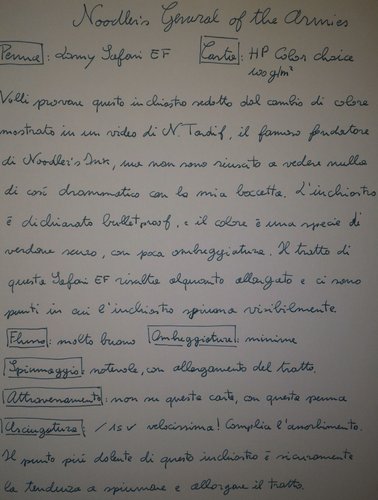 Noodler's General of the Armies
Penna: Lamy Safari EF Carta: HP Color choice
100 g/m²
Volli provare questo inchiostro sedotto dal cambio di colore
mostrato in un video di N. Tardif, il famoso fondatore
di Noodler's Ink, ma non sono riuscito a vedere nulla
di così drammatico con la mia boccetta. L'inchiostro
è dichiarato bulletproof, e il colore è una specie di
verdone scuro, con poca ombreggiatura. Il tratto di
questa Safari EF risulta alquanto allargato e ci sono
punti in cui l'inchiostro spiuma visibilmente
Flusso: molto buono Ombreggiatura: minime
Spiumaggio: notevole, con allargamento del tratto.
Attraversamento: non su questa carta, con questa penna
Asciugatura: / 1s ✓ velocissima! Complice l'assorbimento.
Il punto più dolente di questo inchiostro è sicuramente
la tendenza a spiumare e allargare il tratto.